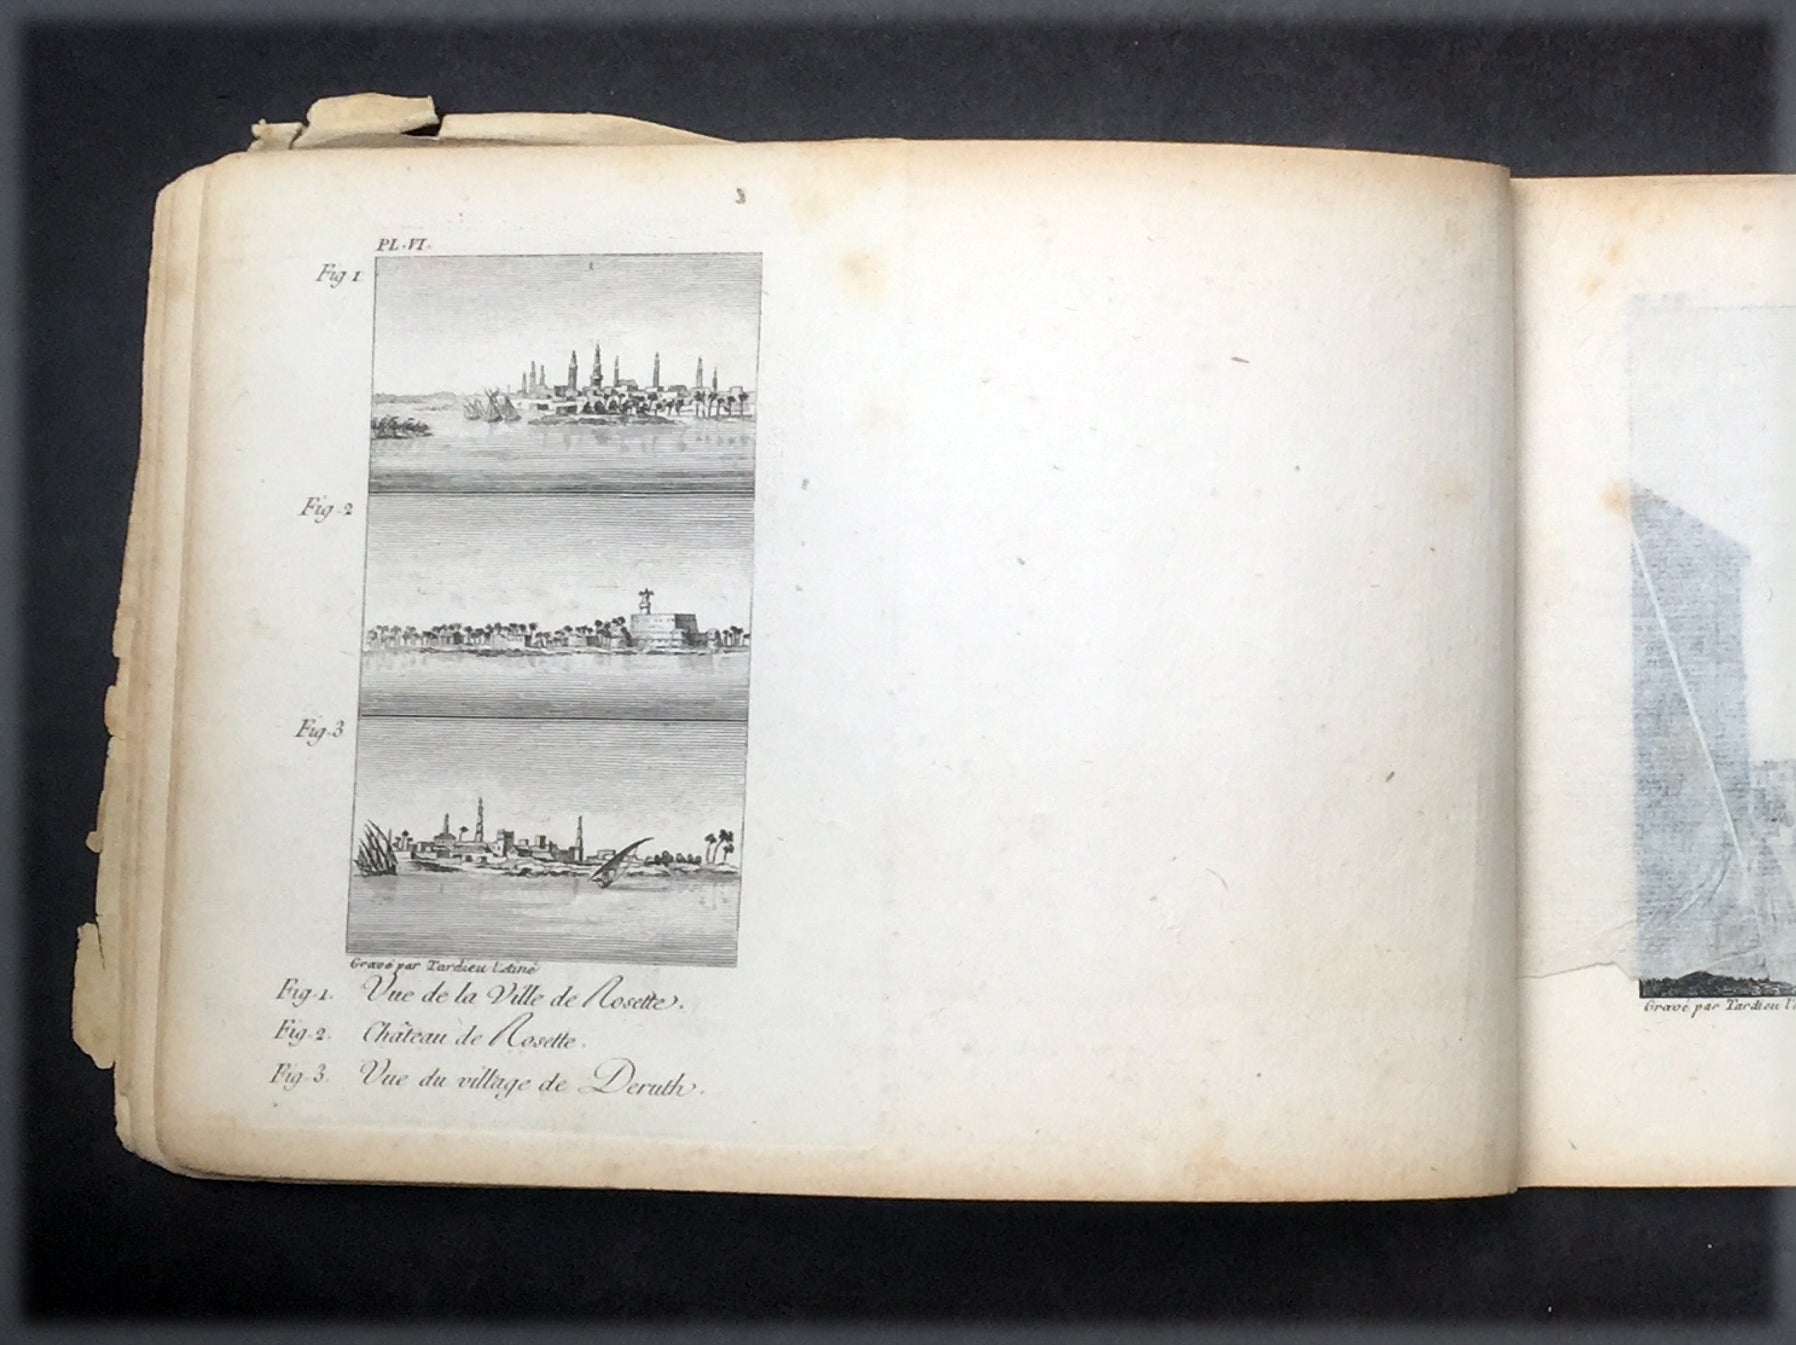 3
PL. VI.
Fig 1
1
Fig. 2
Fig. 3
Gravé par Tardieu l'ainé
Fig. 1. Vue de la Ville de Rosette.
Fig. 2. Château de Rosette.
Fig. 3. Vue du village de Deruth.
Gravé par Tardieu